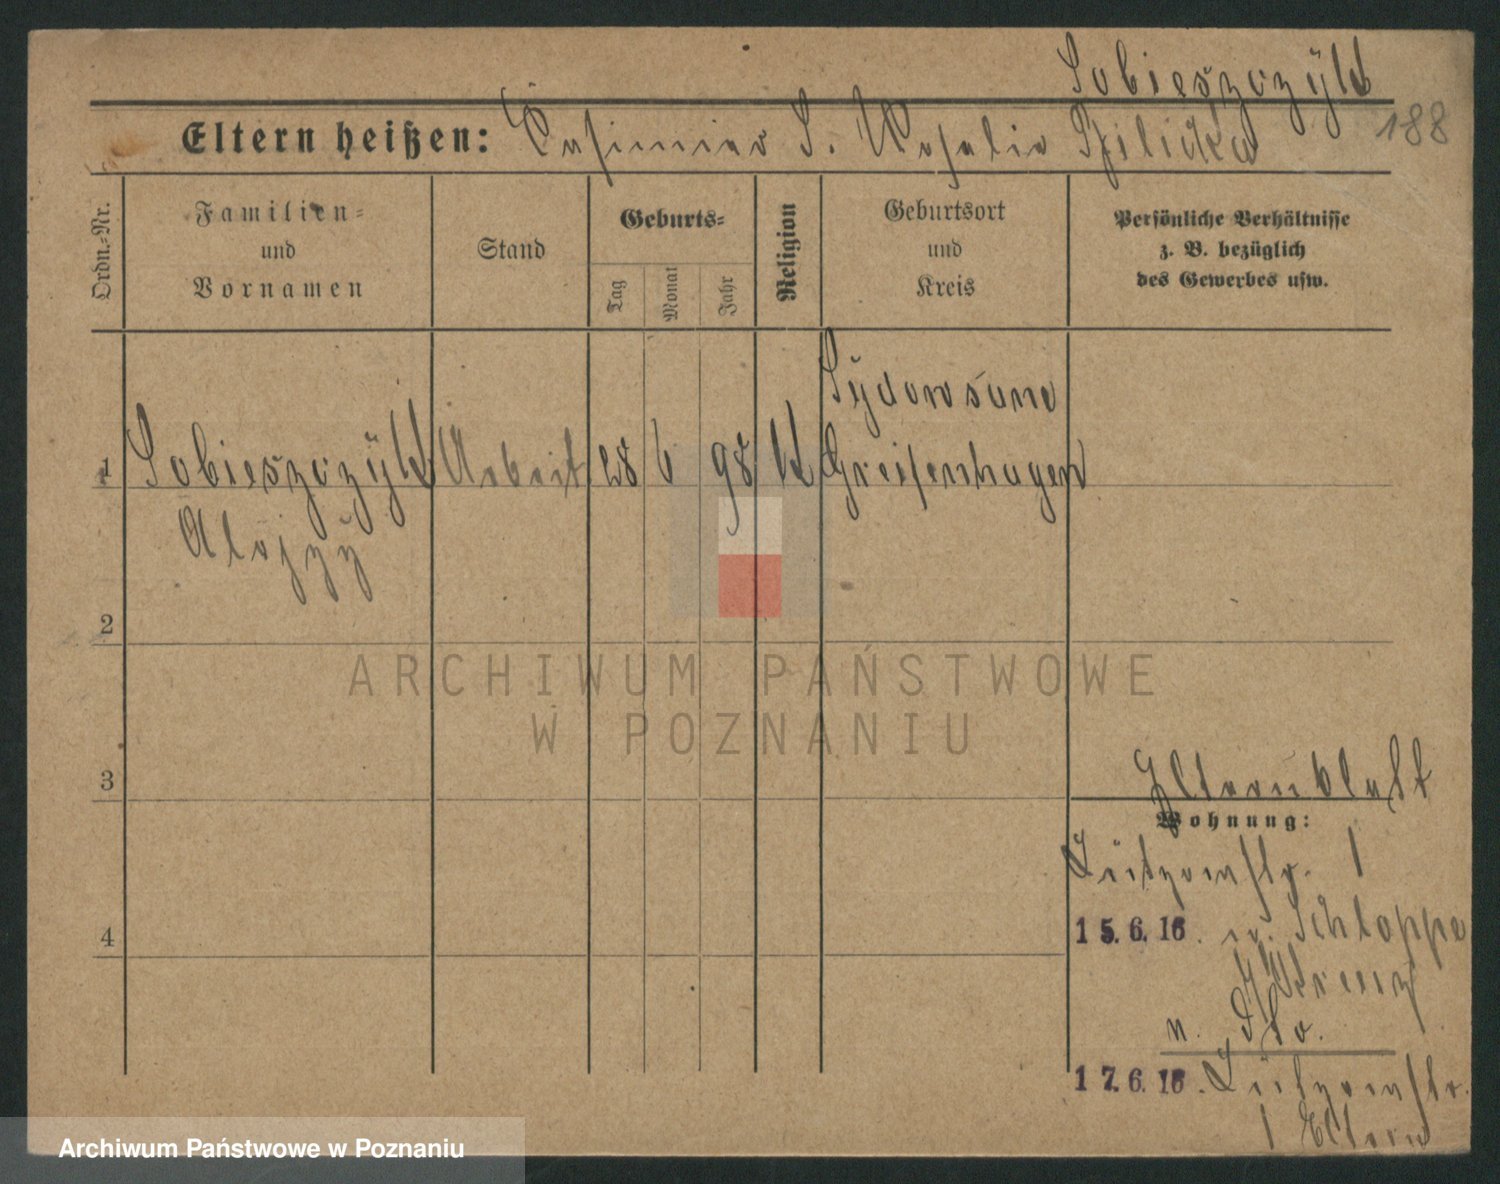 Sobieszczÿk
188
Eltern heißen: Casimier S. Rosalie Pilicka
Ordn.-Nr.
Familien-
und
Vornamen
Stand
Geburts-
Tag
Monat
Jahr
Religion
Geburtsort
und
Kreis
Persönliche Verhältnisse
z. B. bezüglich
des Gewerbes usw.
Sydowsaue
1 Sobieszczÿk Arbeit 28 6 98 K Greifenhagen
Alojzy
2
ARCHIWUM PAŃSTWOWE
W POZNANIU
3
Elternblatt
Wohnung:
Lützowstr. 1
4
15.6.16. Schloppe
n.
17.6.16. Lützowstr.
1 Eltern
Archiwum Państwowe w Poznaniu